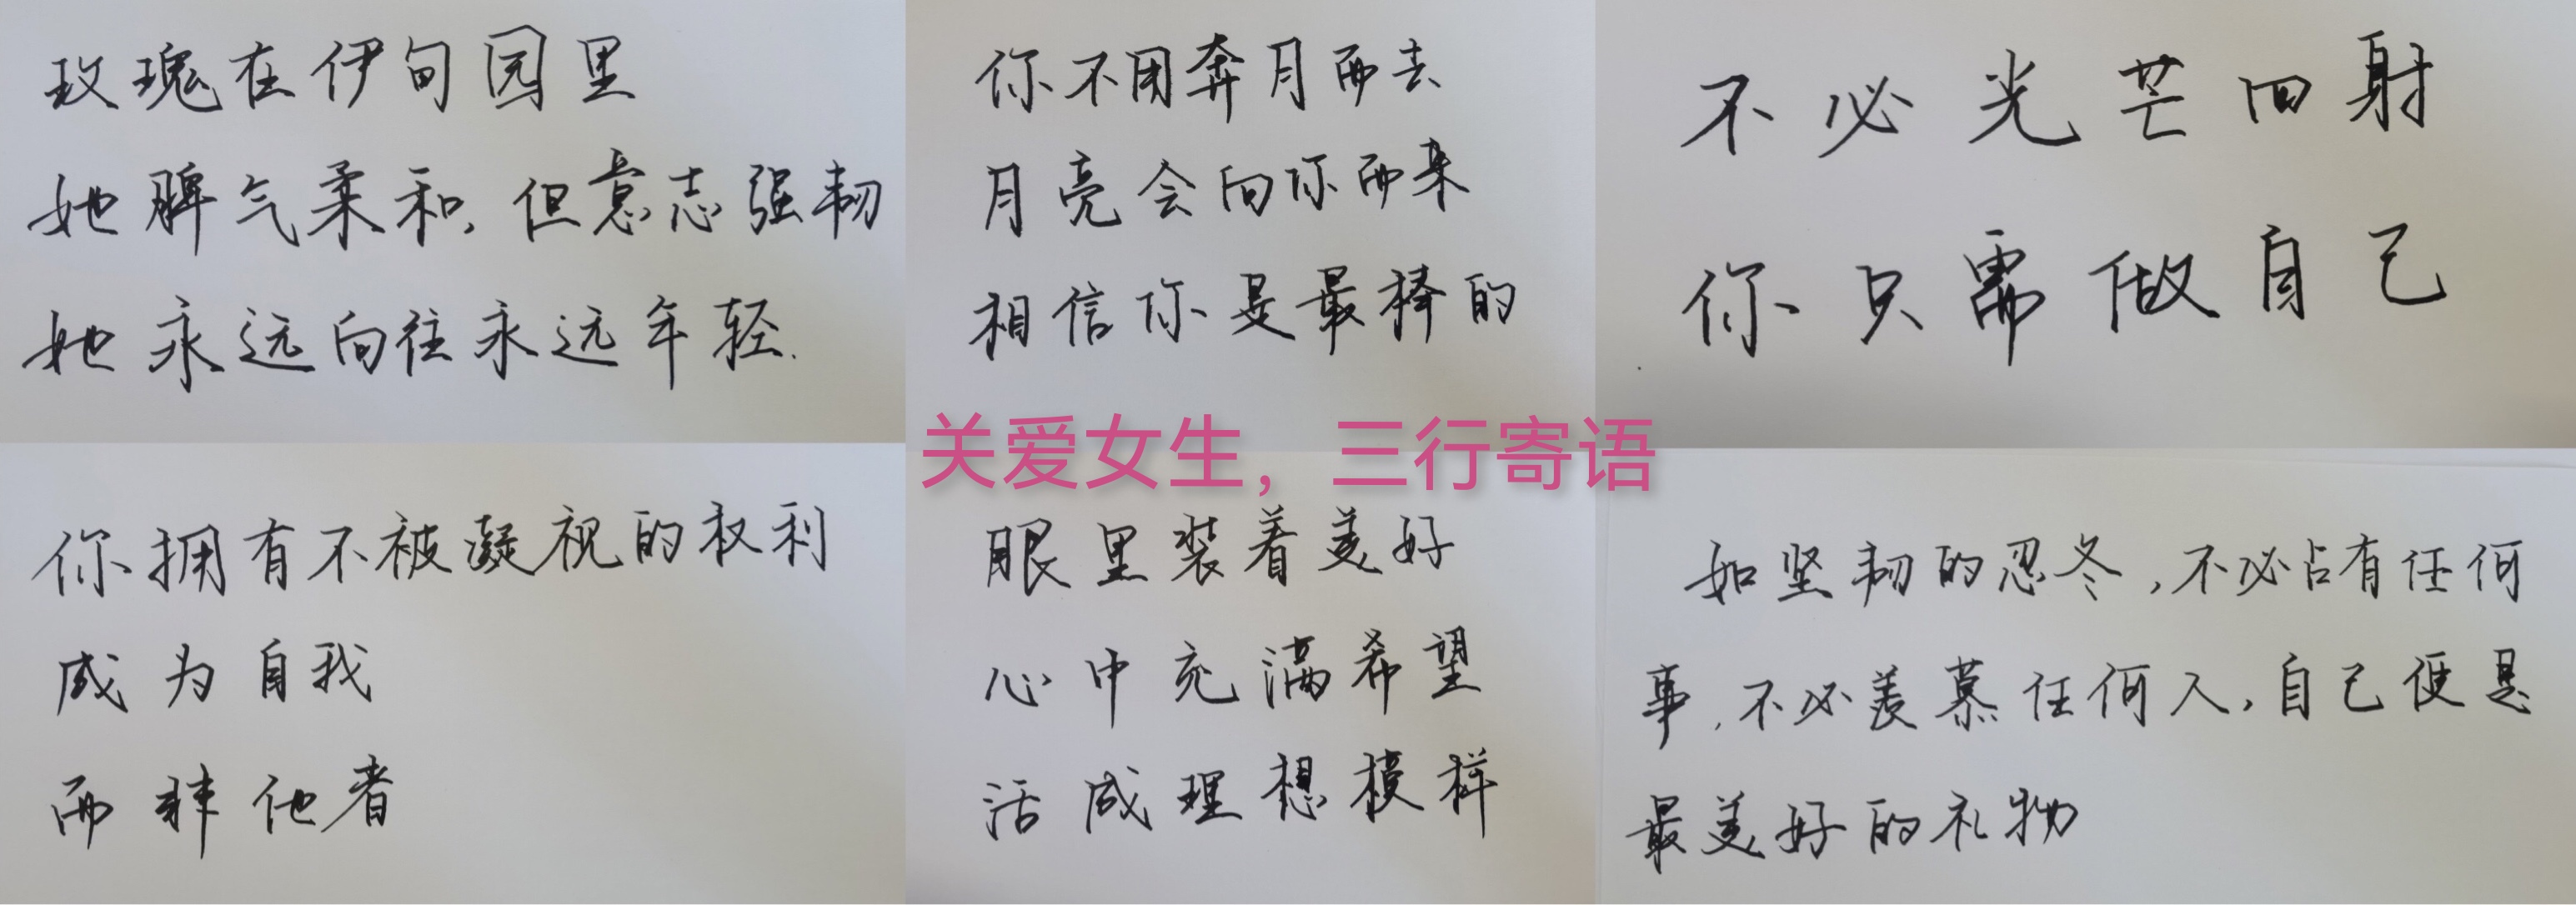 玫瑰在伊甸园里
她脾气柔和，但意志强韧
她永远向往永远年轻.
你不用奔月而去
月亮会向你而来
相信你是最棒的
不必光芒四射
你只需做自己
关爱女生，三行寄语
你拥有不被凝视的权利
成为自我
而非他者
眼里装着美好
心中充满希望
活成理想模样
如坚韧的忍冬，不必占有任何
事，不必羡慕任何人，自己便是
最美好的礼物